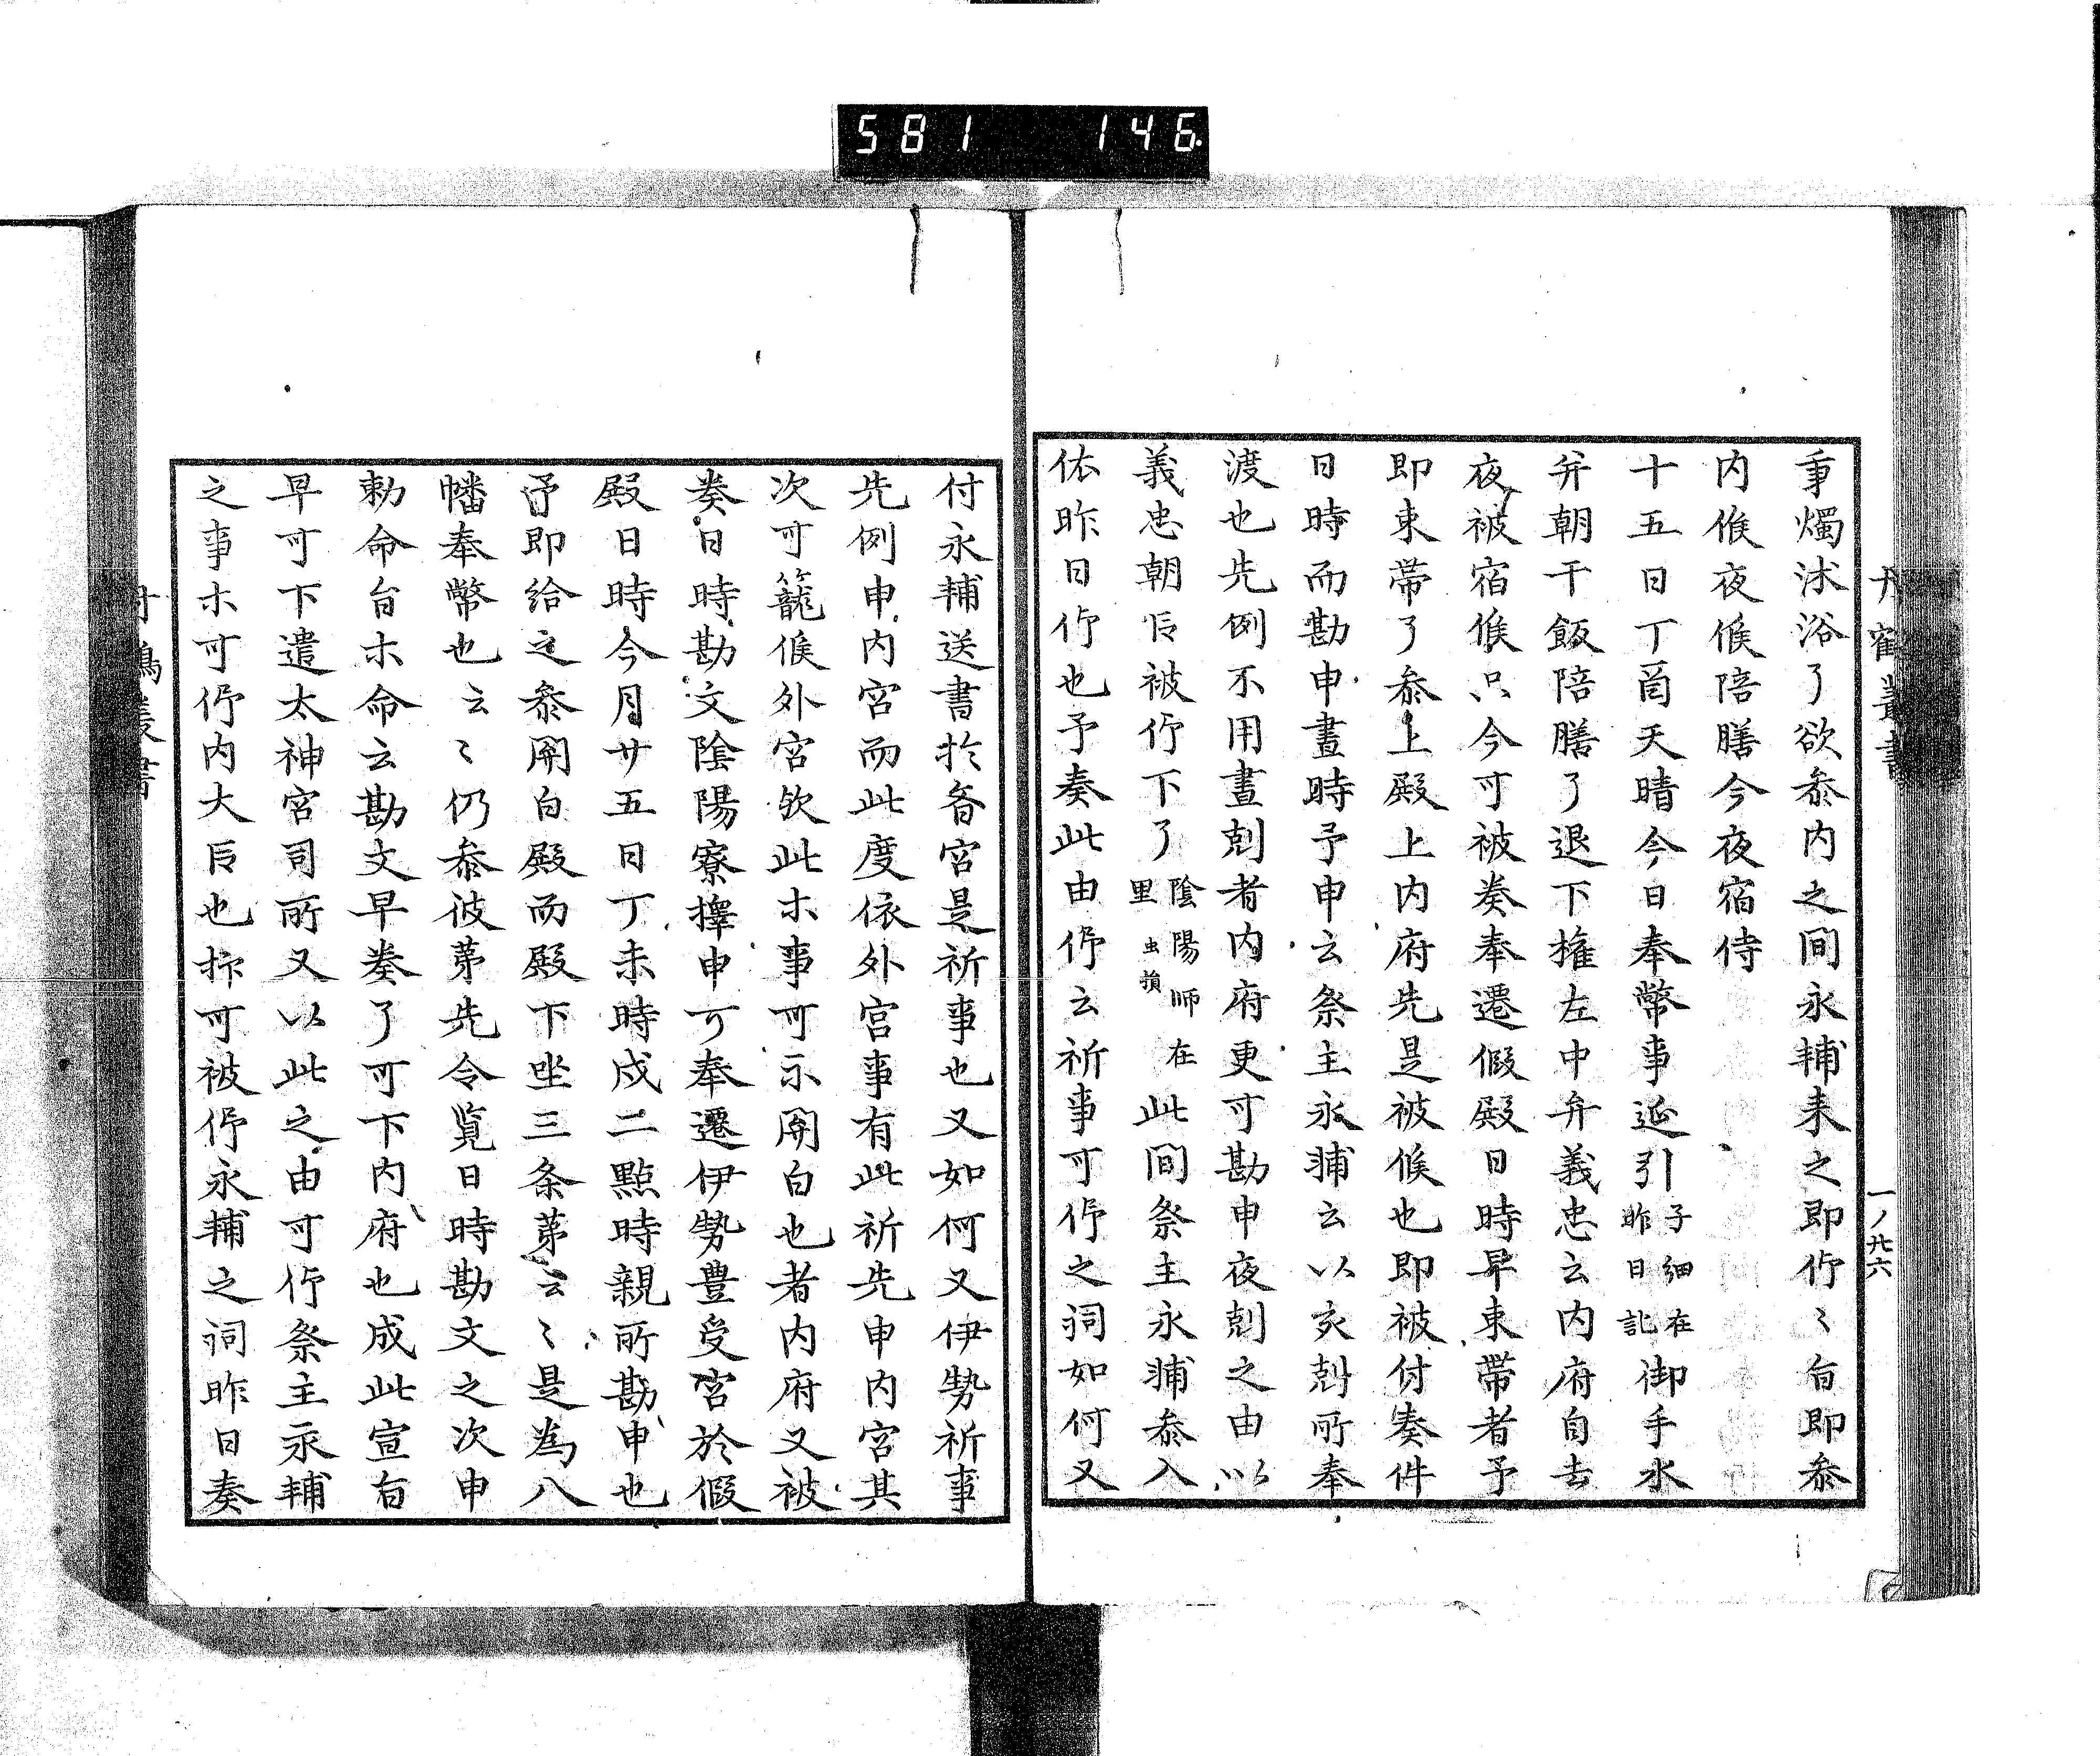 581 146
丹鶴叢書
一ノ廿六
秉燭沐浴了欲参内之間永輔来之即仰〻旨即参
内候夜候陪膳今夜宿侍
十五日丁酉天晴今日奉幣事延引子細在昨日記御手水
并朝干飯陪膳了退下権左中弁義忠云内府自去
夜被宿候只今可被奏奉遷假殿日時早束帯者予
即束帯了参上殿上内府先是被候也即被付奏件
日時而勘申晝時予申云祭主永輔云以亥剋所奉
渡也先例不用晝剋者内府更可勘申夜剋之由以
義忠朝臣被仰下了陰陽師在里虫損此間祭主永輔参入
依昨日仰也予奏此由仰云祈事可仰之詞如何又
付永輔送書於斎宮是祈事也又如何又伊勢祈事
先例申内宮而此度依外宮事有此祈先申内宮其
次可籠候外宮欤此木事可示関白也者内府又被
奏日時勘文陰陽寮擇申可奉遷伊勢豊受宮於假
殿日時今月廿五日丁未時戌二點時親所勘申也
予即給之参関白殿而殿下坐三条第云〻是為八
幡奉幣也云〻仍参彼第先令覧日時勘文之次申
勅命旨木命云勘文早奏了可下内府也成此宣旨
早可下遣太神宮司所又以此之由可仰祭主永輔
之事木可仰内大臣也抑可被仰永輔之詞昨日奏
丹鶴叢書